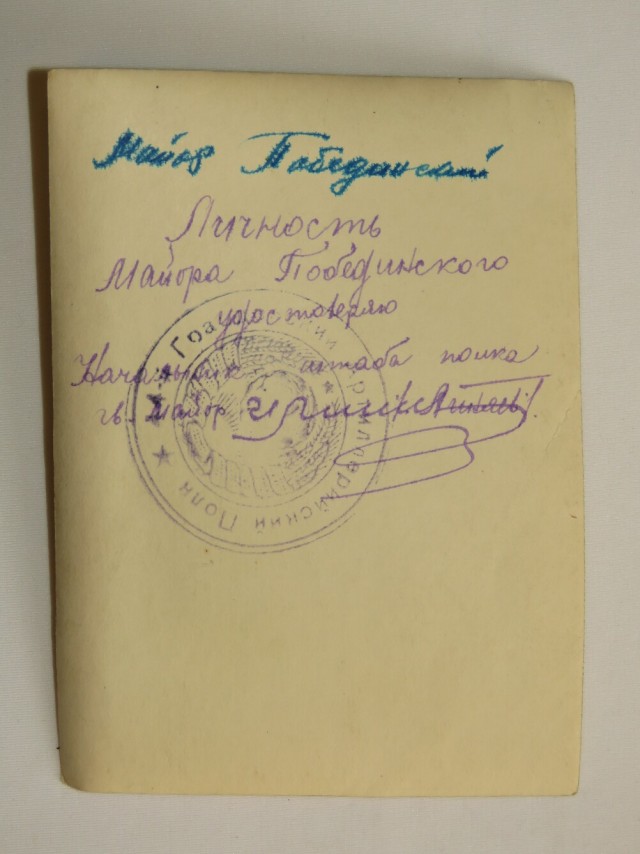 Майор Побединский
Личность
Майора Побединского
удостоверяю
Начальник штаба полка
гв. майор
Артиллерийский Полк